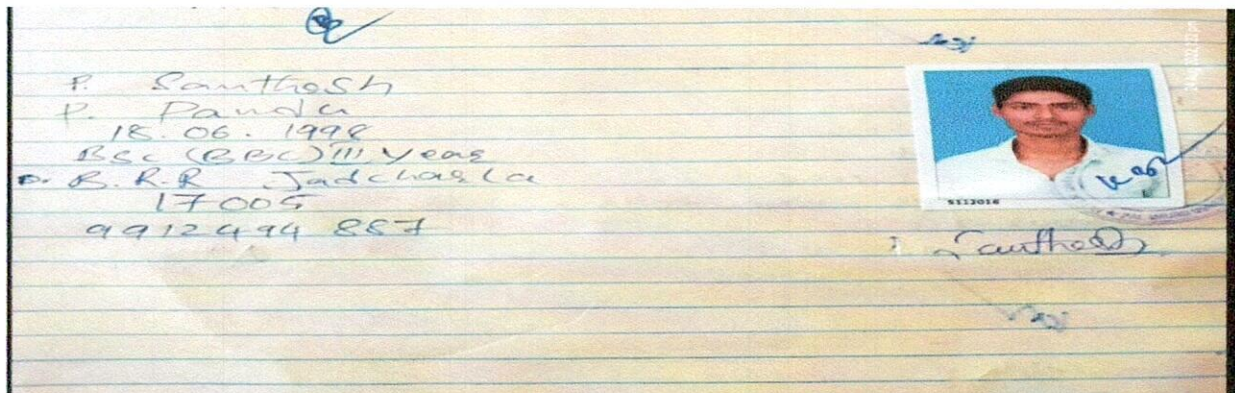 P. Santhosh
P. Pandu
18.06.1998
BSc (BBC) III year
B.R.R Jadcharla
17005
9912494 887
S112016
Santhosh